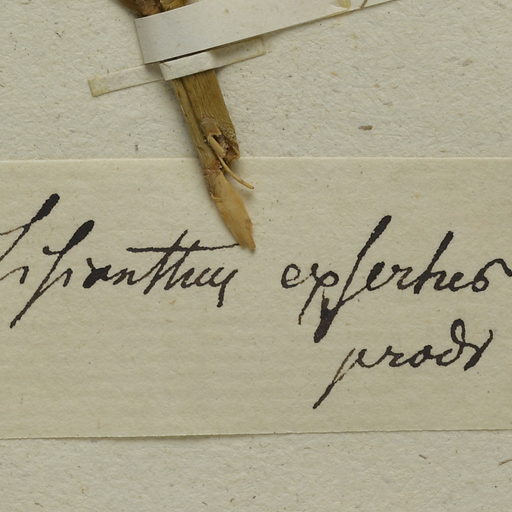 Lisianthus exsertus
prodr